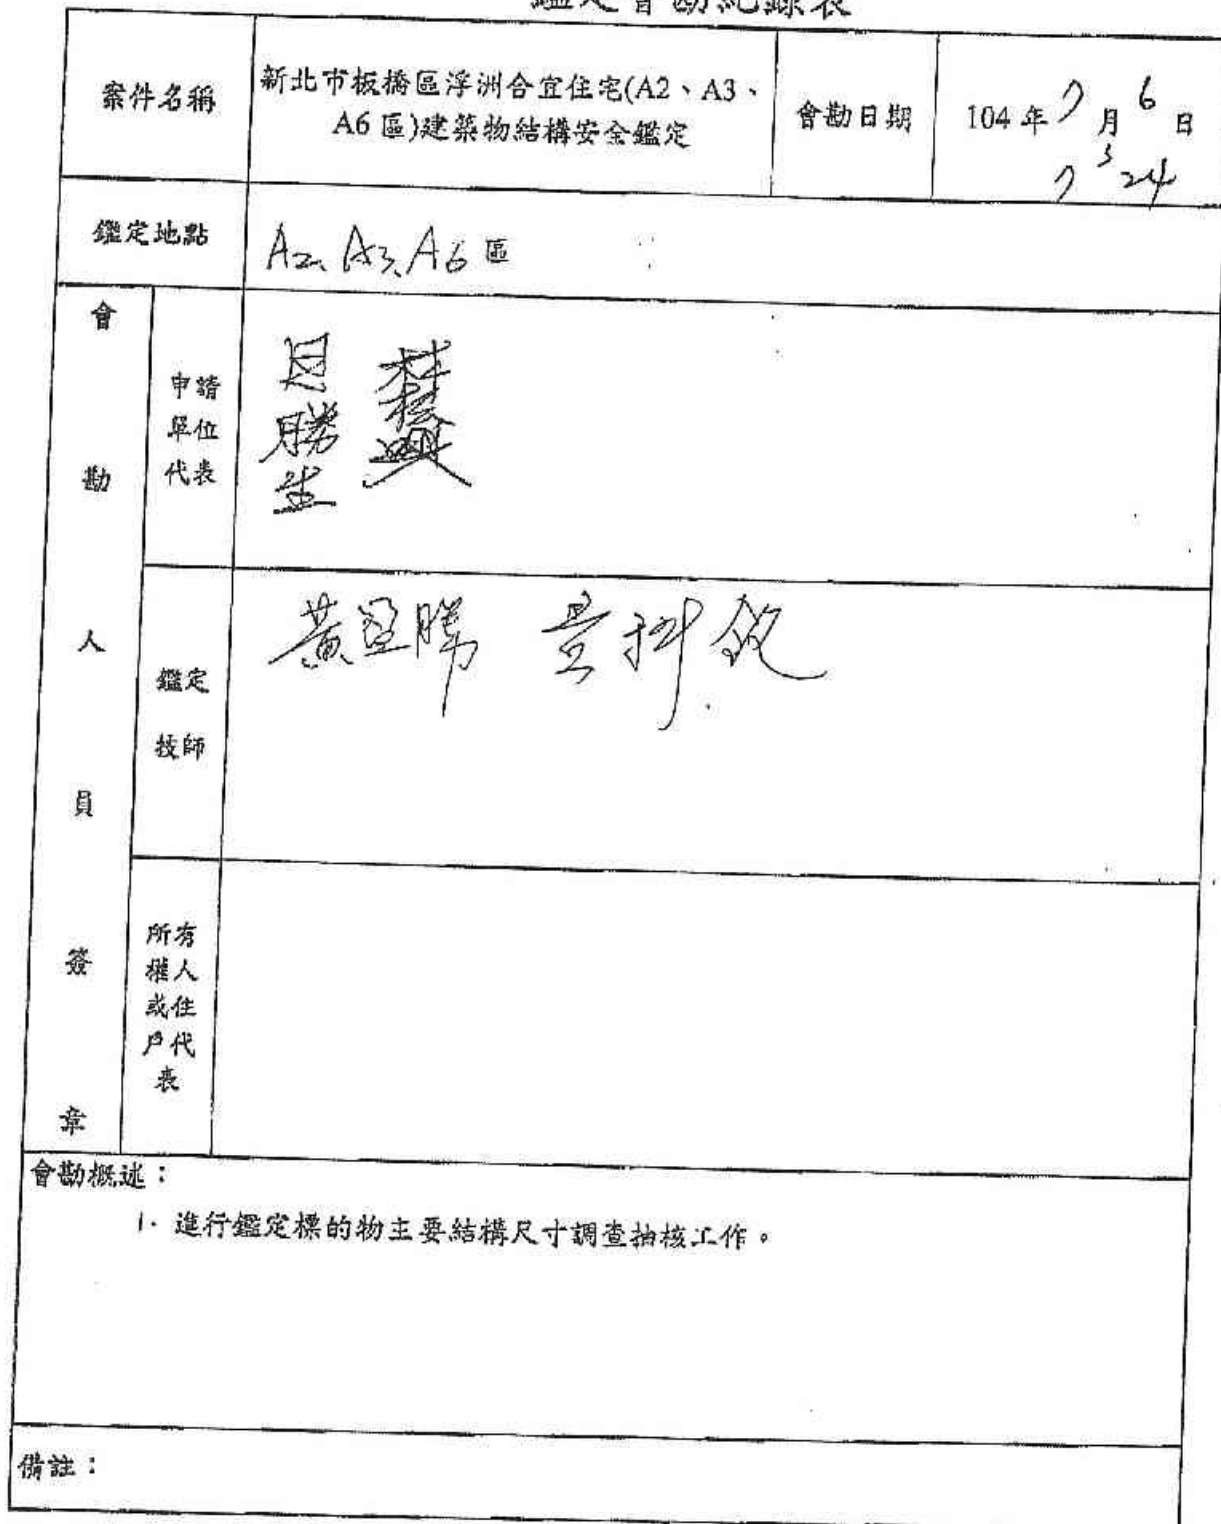 鑑定會勘紀錄表
案件名稱
新北市板橋區浮洲合宜住宅(A2、A3、
A6區)建築物結構安全鑑定
會勘日期
104年7月6日
7 24
鑑定地點
A2、A3、A6區
會勘人員簽章
申請
單位
代表
日勝生
鑑定
技師
黃
所有
權人
或住
戶代
表
會勘概述：
1. 進行鑑定標的物主要結構尺寸調查抽核工作。
備註：